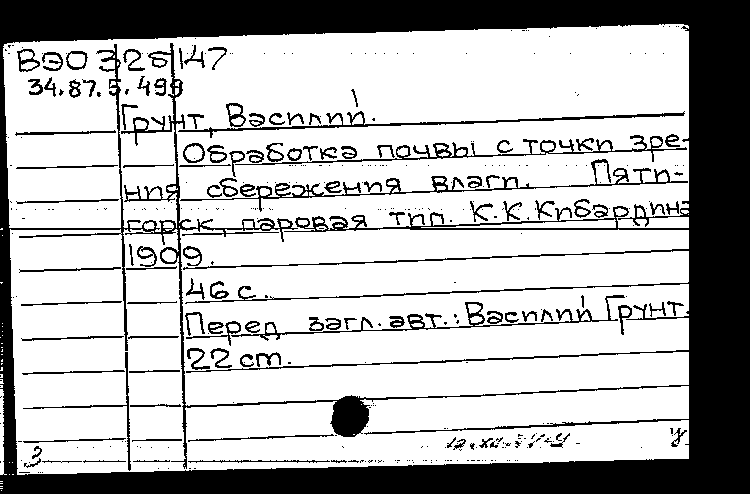 ВЭО 328/147
34.87.5.499
Грунт, Василий.
Обработка почвы с точки зре-
ния сбережения влаги. Пяти-
горск, паровая тип. К.К.Кибардина
1909.
46 с.
Перед загл. авт.: Василий Грунт.
22 см.
3